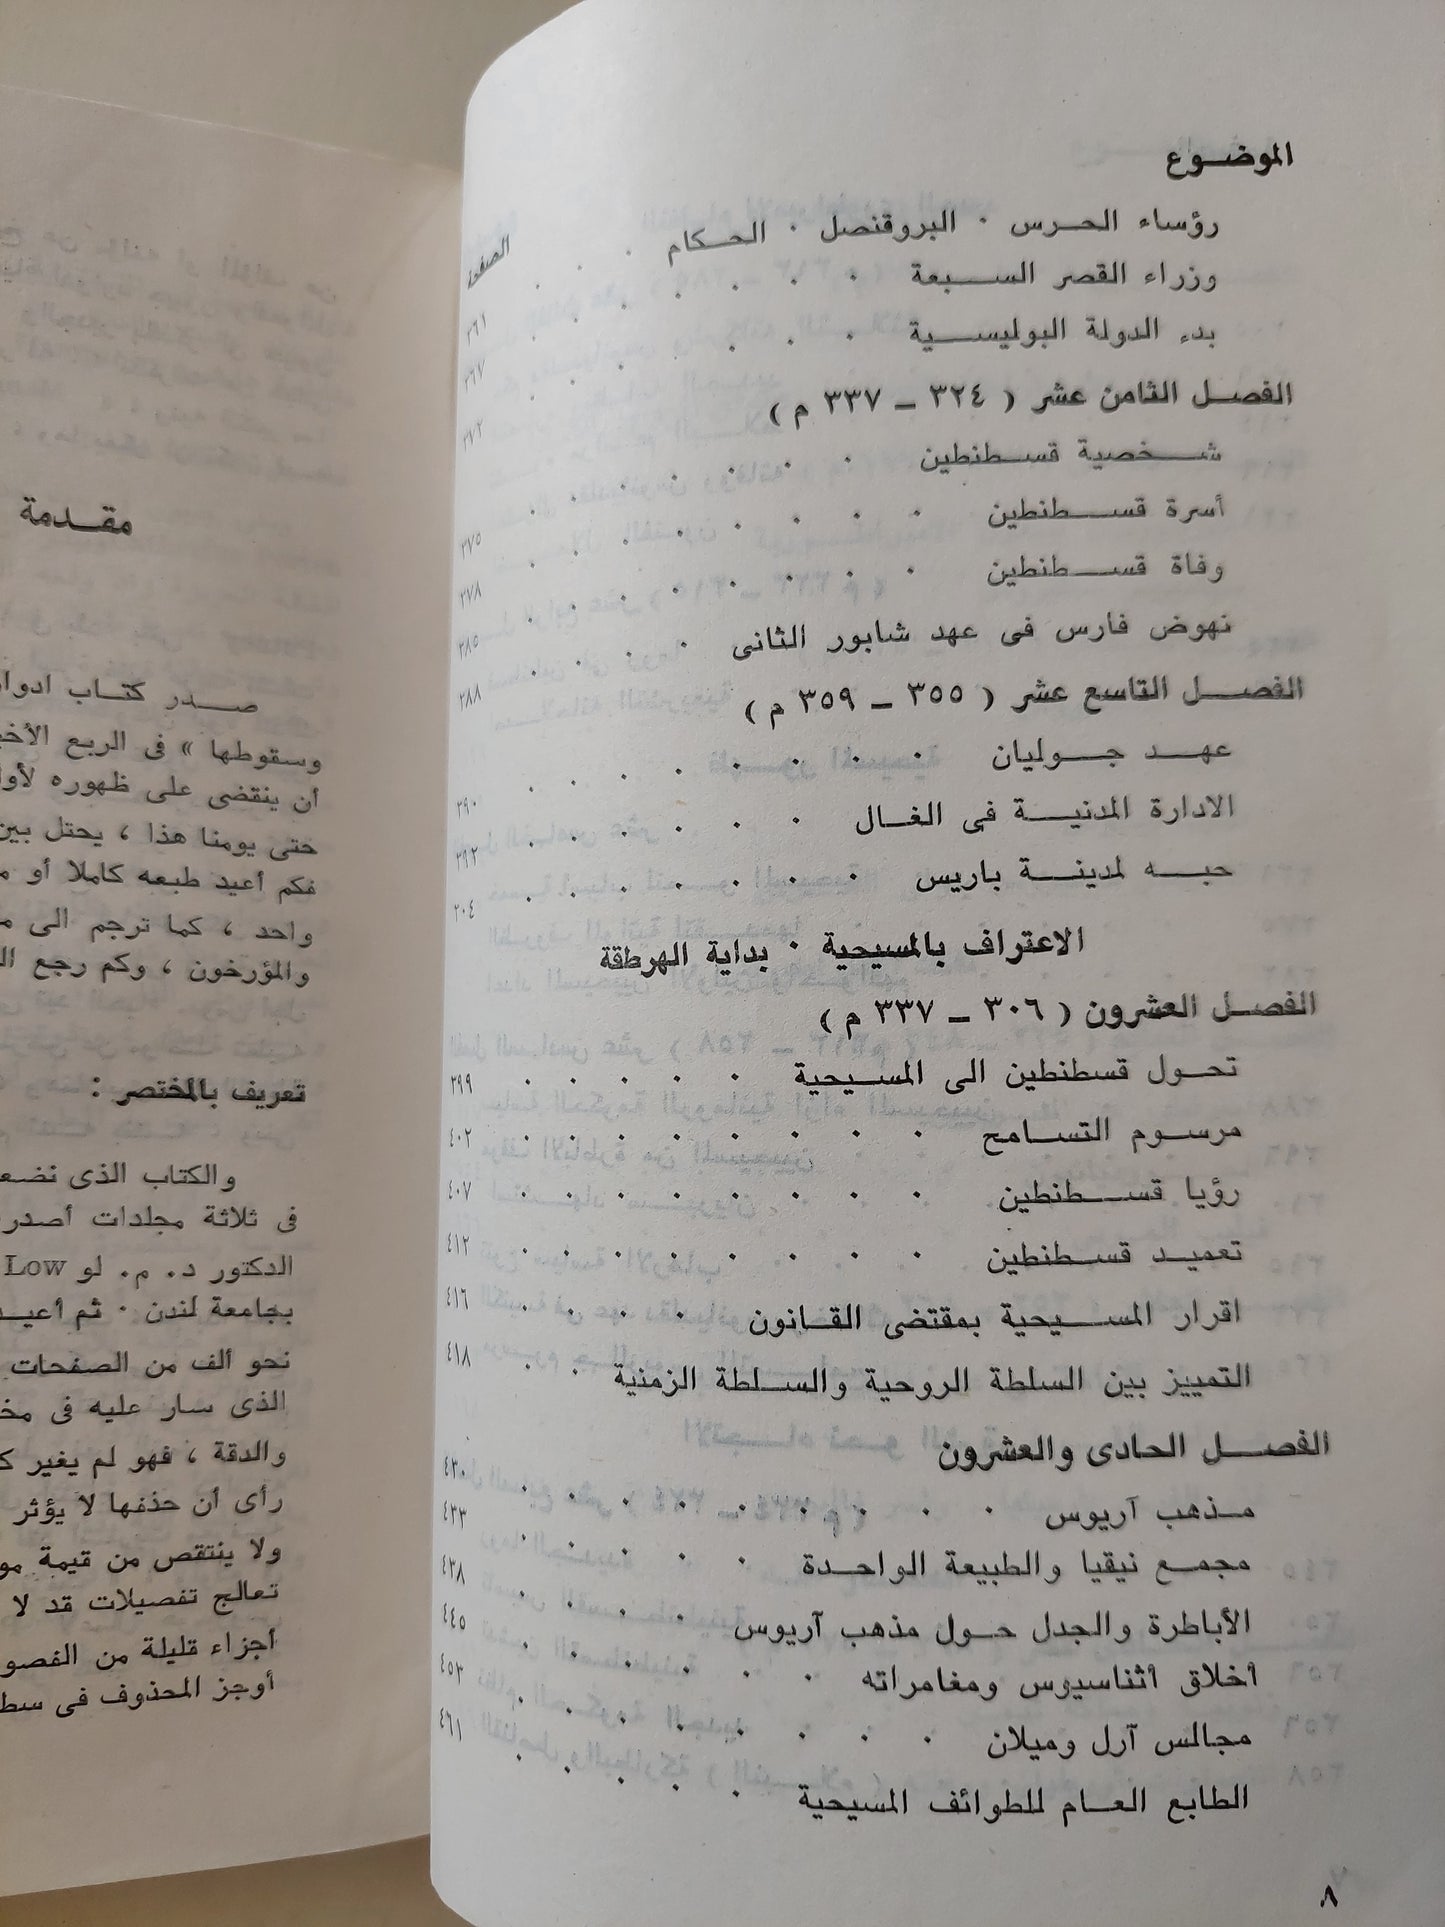 الموضوع
الصفحة
رؤساء الحرس · البروقنصل · الحكام ٣٦١
وزراء القصر السبعة ٣٦٧
بدء الدولة البوليسية ٣٧٢
الفصل الثامن عشر ( ٣٢٤ – ٣٣٧ م )
شخصية قسطنطين ٣٧٥
أسرة قسطنطين ٣٧٨
وفاة قسطنطين ٣٨٥
نهوض فارس فى عهد شابور الثانى ٣٨٨
الفصل التاسع عشر ( ٣٥٥ – ٣٥٩ م )
عهد جوليان ٣٩٠
الادارة المدنية فى الغال ٣٩٢
حبه لمدينة باريس ٢٠٤
الاعتراف بالمسيحية · بداية الهرطقة
الفصل العشرون ( ٣٠٦ – ٣٣٧ م )
تحول قسطنطين الى المسيحية ٣٩٩
مرسوم التسامح ٤٠٢
رؤيا قسطنطين ٤٠٧
تعميد قسطنطين ٤١٢
اقرار المسيحية بمقتضى القانون ٤١٦
التمييز بين السلطة الروحية والسلطة الزمنية ٤١٨
الفصل الحادى والعشرون
مذهب آريوس ٤٣٠
مجمع نيقيا والطبيعة الواحدة ٤٣٣
الأباطرة والجدل حول مذهب آريوس ٤٣٨
أخلاق أثناسيوس ومغامراته ٤٤٥
مجالس آرل وميلان ٤٥٣
الطابع العام للطوائف المسيحية ٤٦١
٨
مقدمة
صدر كتاب
وسقوطها » فى الربع
أن ينقضى على ظهوره
حتى يومنا هذا ، يحتل بين
فكم أعيد طبعه كاملا أو
واحد ، كما ترجم الى
والمؤرخون ، وكم رجع
تعريف بالمختصر :
والكتاب الذى
فى ثلاثة مجلدات
الدكتور د. م. لو Low
بجامعة لندن · ثم
نحو ألف من الصفحات
الذى سار عليه فى
والدقة ، فهو لم يغير
رأى أن حذفها لا يؤثر
ولا ينتقص من قيمة
تعالج تفصيلات قد لا
أجزاء قليلة من
أوجز المحذوف فى